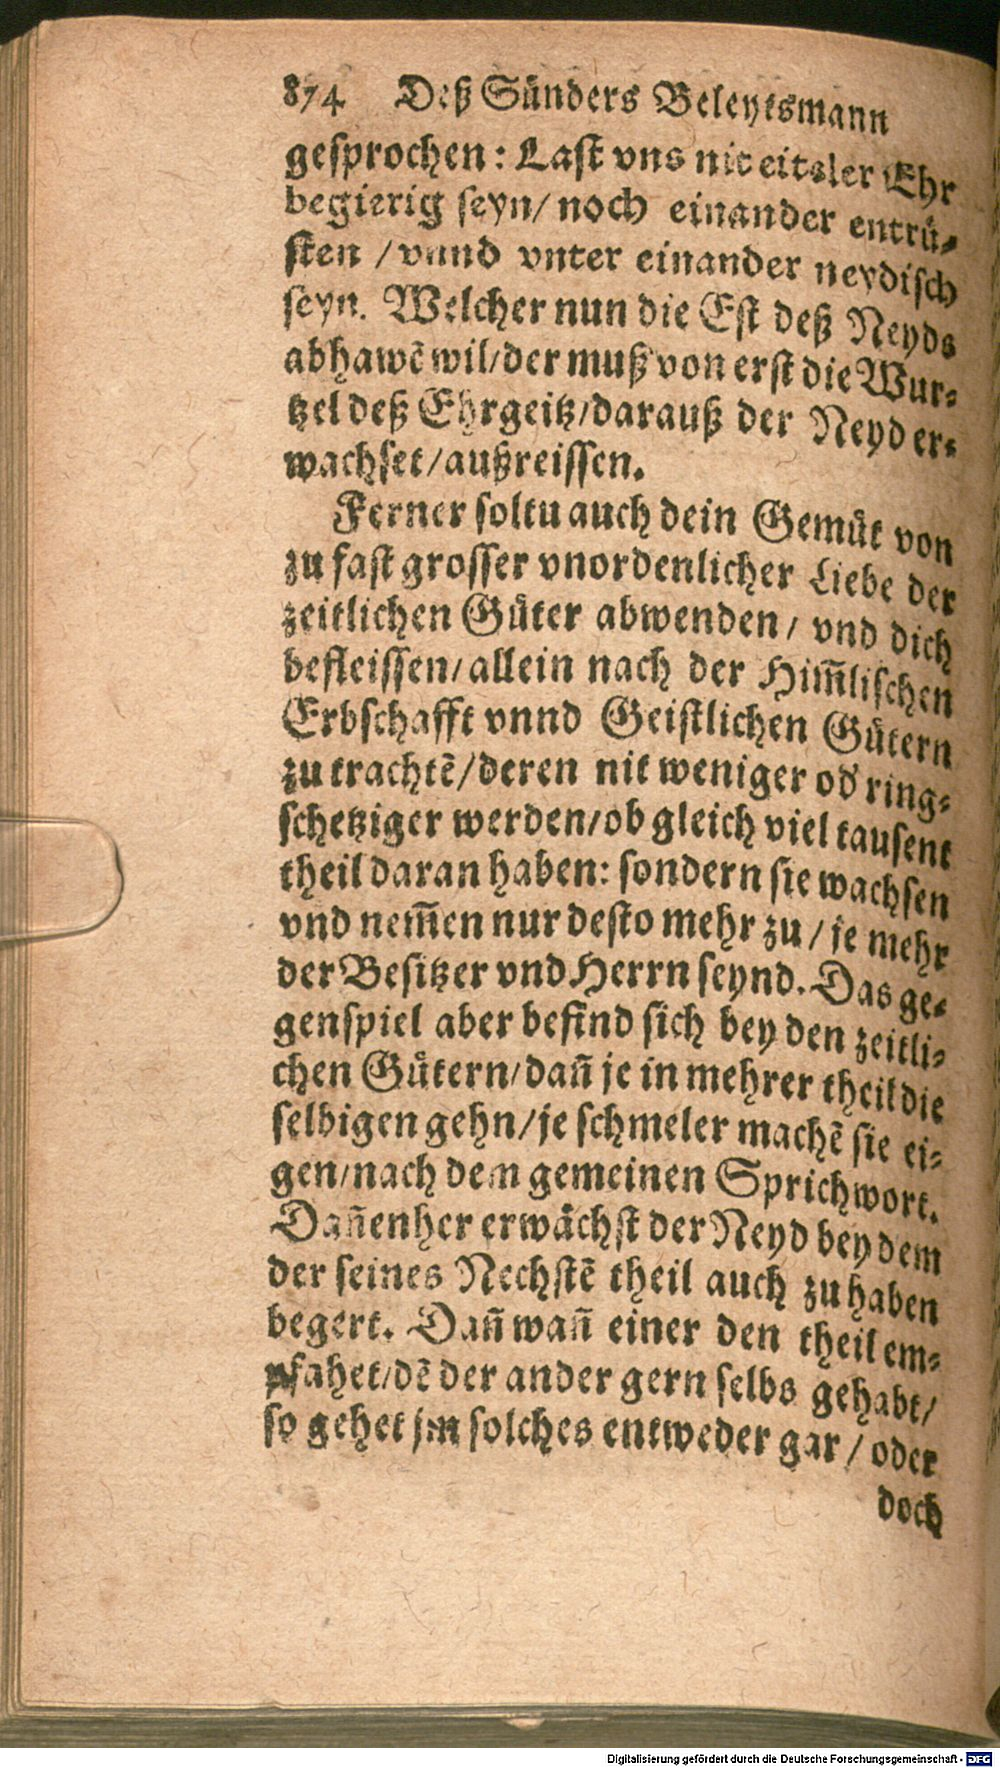 874 Deß Sünders Beleytsmann
gesprochen: Last vns nit eitaler Ehr
begierig seyn/ noch einander entrü-
sten / vnnd vnter einander neydisch
seyn. Welcher nun die Est deß Neyds
abhawē wil/der muß von erst die Wur-
tzel deß Ehrgeitz/darauß der Neyd er-
wachset/außreissen.
Ferner soltu auch dein Gemüt von
zu fast grosser vnordenlicher Liebe der
zeitlichen Güter abwenden/ vnd dich
befleissen/allein nach der Him̃lischen
Erbschafft vnnd Geistlichen Gütern
zu trachtē/deren nit weniger od' ring-
schetziger werden/ob gleich viel tausent
theil daran haben: sondern sie wachsen
vnd nem̃en nur desto mehr zu/ je mehr
der Besitzer vnd Herrn seynd. Das ge-
genspiel aber befind sich bey den zeitli-
chen Gütern/dañ je in mehrer theil die
selbigen gehn/je schmeler machē sie ei-
gen/nach dem gemeinen Sprichwort.
Dañenher erwächst der Neyd bey dem
der seines Nechstē theil auch zu haben
begert. Dañ wañ einer den theil em-
pfahet/dē der ander gern selbs gehabt/
so gehet jm solches entweder gar / oder
doch
Digitalisierung gefördert durch die Deutsche Forschungsgemeinschaft - DFG